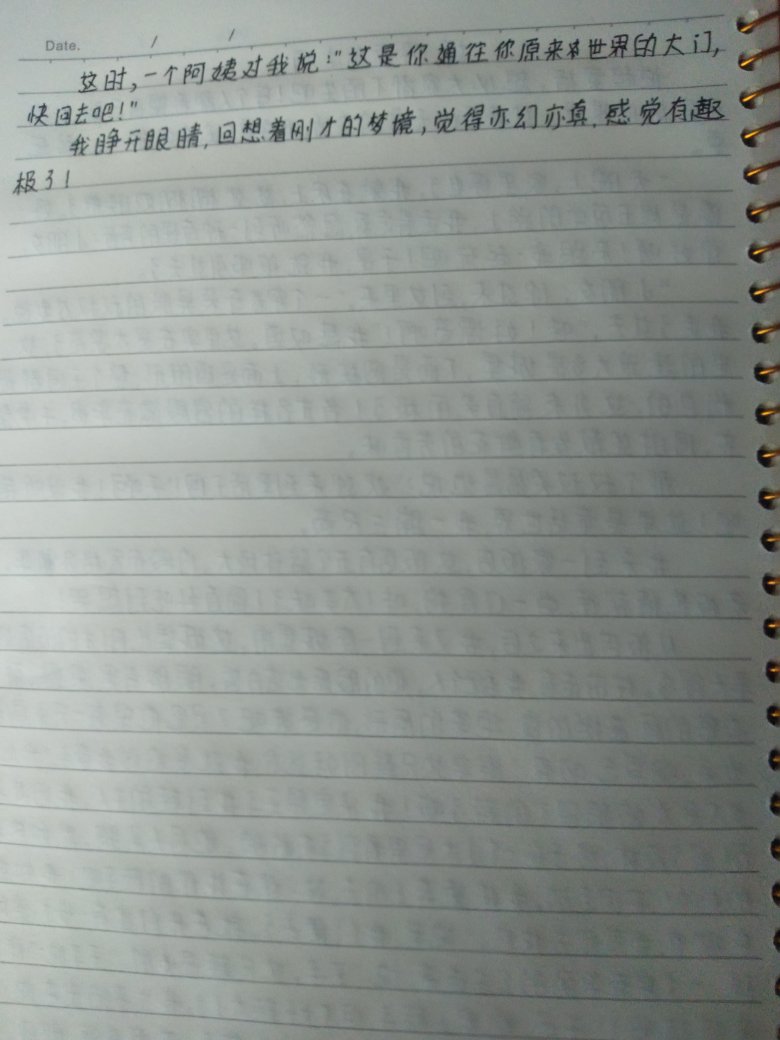 Date. / /
这时,一个阿姨对我说:"这是你通往你原来世界的大门,
快回去吧!"
我睁开眼睛,回想着刚才的梦境,觉得亦幻亦真,感觉有趣
极了!